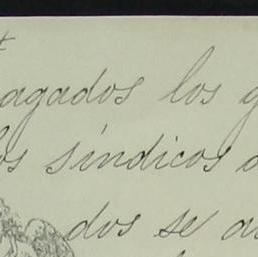 agados los g
los síndicos
dos se a